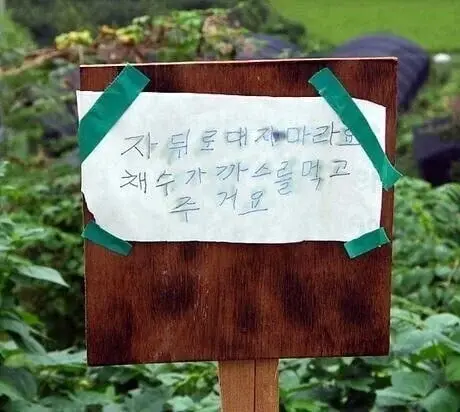 차 뒤로대지마라요
채수가까스를먹고
주거요